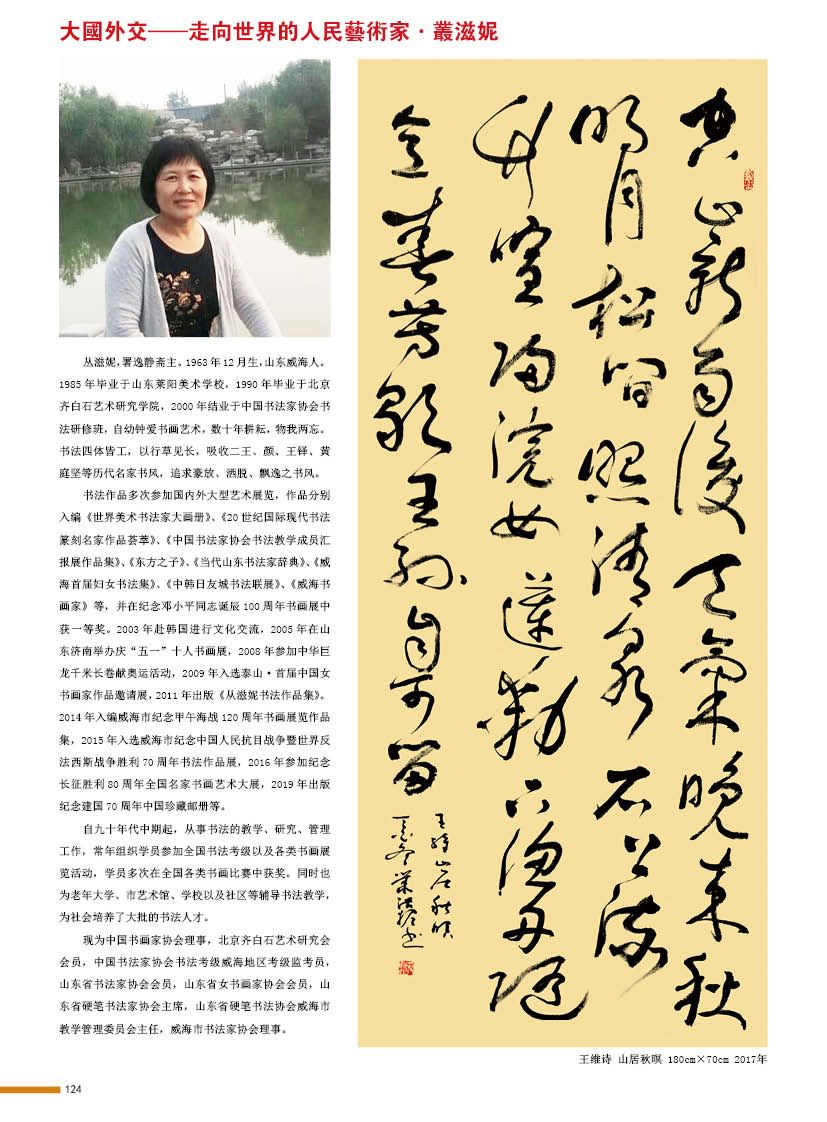 大國外交——走向世界的人民藝術家·叢滋妮
丛滋妮，署逸静斋主。1963年12月生，山东威海人。
1985年毕业于山东莱阳美术学校，1990年毕业于北京
齐白石艺术研究学院，2000年结业于中国书法家协会书
法研修班，自幼钟爱书画艺术，数十年耕耘，物我两忘。
书法四体皆工，以行草见长，吸收二王、颜、王铎、黄
庭坚等历代名家书风，追求豪放、洒脱、飘逸之书风。
书法作品多次参加国内外大型艺术展览，作品分别
入编《世界美术书法家大画册》、《20世纪国际现代书法
篆刻名家作品荟萃》、《中国书法家协会书法教学成员汇
报展作品集》、《东方之子》、《当代山东书法家辞典》、《威
海首届妇女书法集》、《中韩日友城书法联展》、《威海书
画家》等，并在纪念邓小平同志诞辰100周年书画展中
获一等奖。2003年赴韩国进行文化交流，2005年在山
东济南举办庆“五一”十人书画展，2008年参加中华巨
龙千米长卷献奥运活动，2009年入选泰山·首届中国女
书画家作品邀请展，2011年出版《丛滋妮书法作品集》。
2014年入编威海市纪念甲午海战120周年书画展览作品
集，2015年入选威海市纪念中国人民抗日战争暨世界反
法西斯战争胜利70周年书法作品展，2016年参加纪念
长征胜利80周年全国名家书画艺术大展，2019年出版
纪念建国70周年中国珍藏邮册等。
自九十年代中期起，从事书法的教学、研究、管理
工作，常年组织学员参加全国书法考级以及各类书画展
览活动，学员多次在全国各类书画比赛中获奖。同时也
为老年大学、市艺术馆、学校以及社区等辅导书法教学，
为社会培养了大批的书法人才。
现为中国书画家协会理事，北京齐白石艺术研究会
会员，中国书法家协会书法考级威海地区考级监考员，
山东省书法家协会会员，山东省女书画家协会会员，山
东省硬笔书法家协会主席，山东省硬笔书法协会威海市
教学管理委员会主任，威海市书法家协会理事。
空山新雨後天氣晚来秋
明月松间照清泉石上流
竹喧归浣女莲动下渔舟随
意春芳歇王孙自可留
王维山居秋暝
王维诗 山居秋暝 180cm×70cm 2017年
124